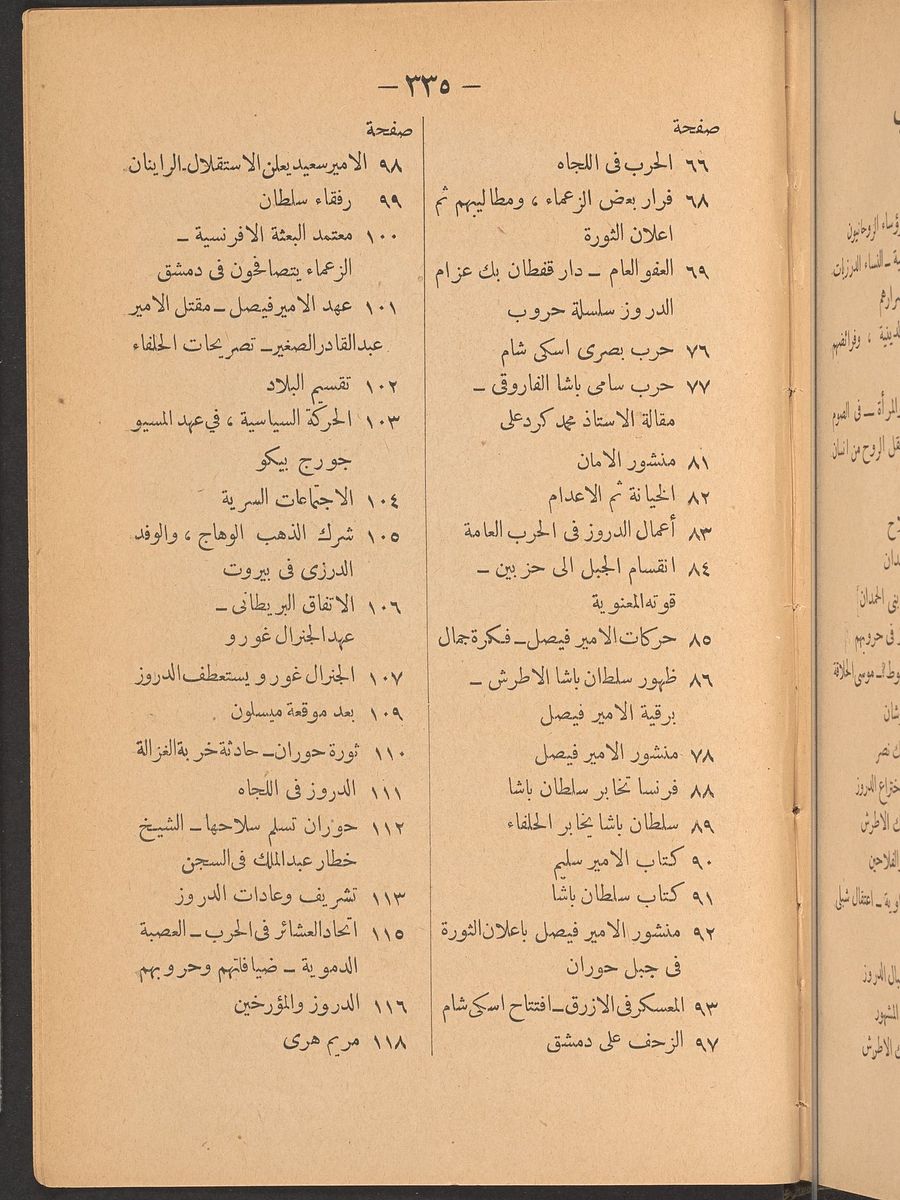 — ٣٣٥ —
صفحة
٦٦ الحرب فى اللجاه
٦٨ فرار بعض الزعماء ، ومطاليبهم ثم
اعلان الثورة
٦٩ العفو العام – دار قفطان بك عزام
الدروز سلسلة حروب
٧٦ حرب بصرى اسكى شام
٧٧ حرب سامى باشا الفاروقى –
مقالة الاستاذ محمد كرد على
٨١ منشور الامان
٨٢ الخيانة ثم الاعدام
٨٣ أعمال الدروز فى الحرب العامة
٨٤ انقسام الجبل الى حزبين –
قوته المعنوية
٨٥ حركات الامير فيصل – فكرة جمال
٨٦ ظهور سلطان باشا الاطرش –
برقية الامير فيصل
٧٨ منشور الامير فيصل
٨٨ فرنسا تخابر سلطان باشا
٨٩ سلطان باشا يخابر الحلفاء
٩٠ كتاب الامير سليم
٩١ كتاب سلطان باشا
٩٢ منشور الامير فيصل باعلان الثورة
فى جبل حوران
٩٣ المعسكر فى الازرق – افتتاح اسكى شام
٩٧ الزحف على دمشق
صفحة
٩٨ الامير سعيد يعلن الاستقلال – الراينان
٩٩ رفقاء سلطان
١٠٠ معتمد البعثة الافرنسية –
الزعماء يتصافحون فى دمشق
١٠١ عهد الامير فيصل – مقتل الامير
عبد القادر الصغير – تصريحات الحلفاء
١٠٢ تقسيم البلاد
١٠٣ الحركة السياسية ، في عهد المسيو
جورج بيكو
١٠٤ الاجتماعات السرية
١٠٥ شرك الذهب الوهاج ، والوفد
الدرزى فى بيروت
١٠٦ الاتفاق البريطانى –
عهد الجنرال غورو
١٠٧ الجنرال غورو يستعطف الدروز
١٠٩ بعد موقعة ميسلون
١١٠ ثورة حوران – حادثة خربة الغزالة
١١١ الدروز فى اللجاه
١١٢ حوران تسلم سلاحها – الشيخ
خطار عبد الملك فى السجن
١١٣ تشريف وعادات الدروز
١١٥ اتحاد العشائر فى الحرب – العصبة
الدموية – ضيافاتهم وحروبهم
١١٦ الدروز والمؤرخين
١١٨ مريم هرى